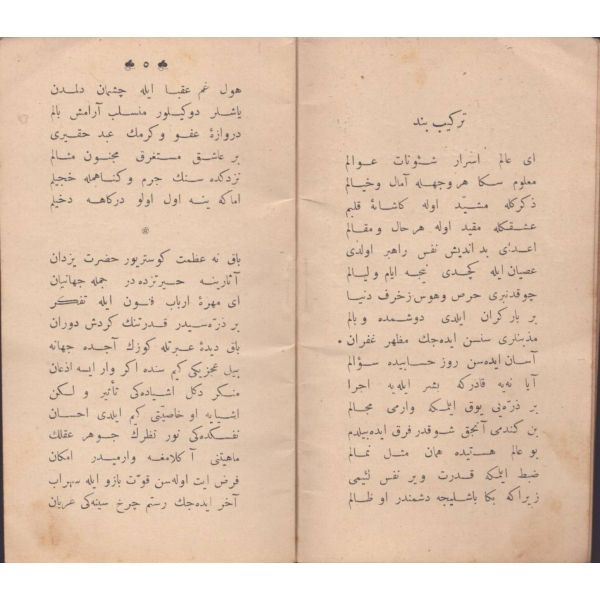 تركيب بند
ای عالم اسرار شئونات عوالم
معلوم سكا هر وجهله آمال وخيالم
ذكركله مشيد اوله كاشانۀ قلبم
عشقكله مقيد اوله هر حال و مقالم
اعدای بد انديش نفس راهبر اولدی
عصيان ايله كچدی نيجه ايام و ليالم
چوقدنبری حرص وهوس زخرف دنيا
بر بار كران ايلدی دوشمده و بالم
مذنبلری سنسن ايده‌جك مظهر غفران
آسان ايده‌سن روز حسابيده سؤالم
آيا نه‌يه قادركه بشر ايليه اجرا
بر ذره‌يی يوق ايلمكه وارمی مجالم
بن كندمی آنجق شوقدر فرق ايده‌بيلدم
بو عالم هستيده همان مثل نمالم
ضبط ايلمكه قدرت وير نفس لئيمی
زيرا كه بكا باشليجه دشمندر او ظالم
٥
هول غم عقبا ايله چشمان دلمدن
ياشلر دوكيلور منسلب آرامش بالم
دروازۀ عفو و كرمك عبد حقيری
بر عاشق مستغرق مجنون مثالم
نزدكده سنك جرم وكناهمله خجيلم
اماكه ينه اول اولو دركاهه دخيلم
باق نه عظمت كوستريور حضرت يزدان
آثارينه حيرتزده‌در جمله جهانيان
ای مهرۀ ارباب فنون ايله تفكر
بر ذره‌سيدر قدرتنك كردش دوران
باق ديدۀ عبرتله كوزك آجده جهانه
بيل عجزيكی كيم سنده اكر وار ايسه اذعان
منكر دكل اشياده‌كی تأثير و لكن
اشيايه او خاصيتی كيم ايلدی احسان
نفسكده‌كی نور نظرك جوهر عقلك
ماهيتنی آكلامغه وارميدر امكان
فرض ايت اوله‌سن قوت بازو ايله سهراب
آخر ايده‌جك رستم چرخ سينه‌كی عريان